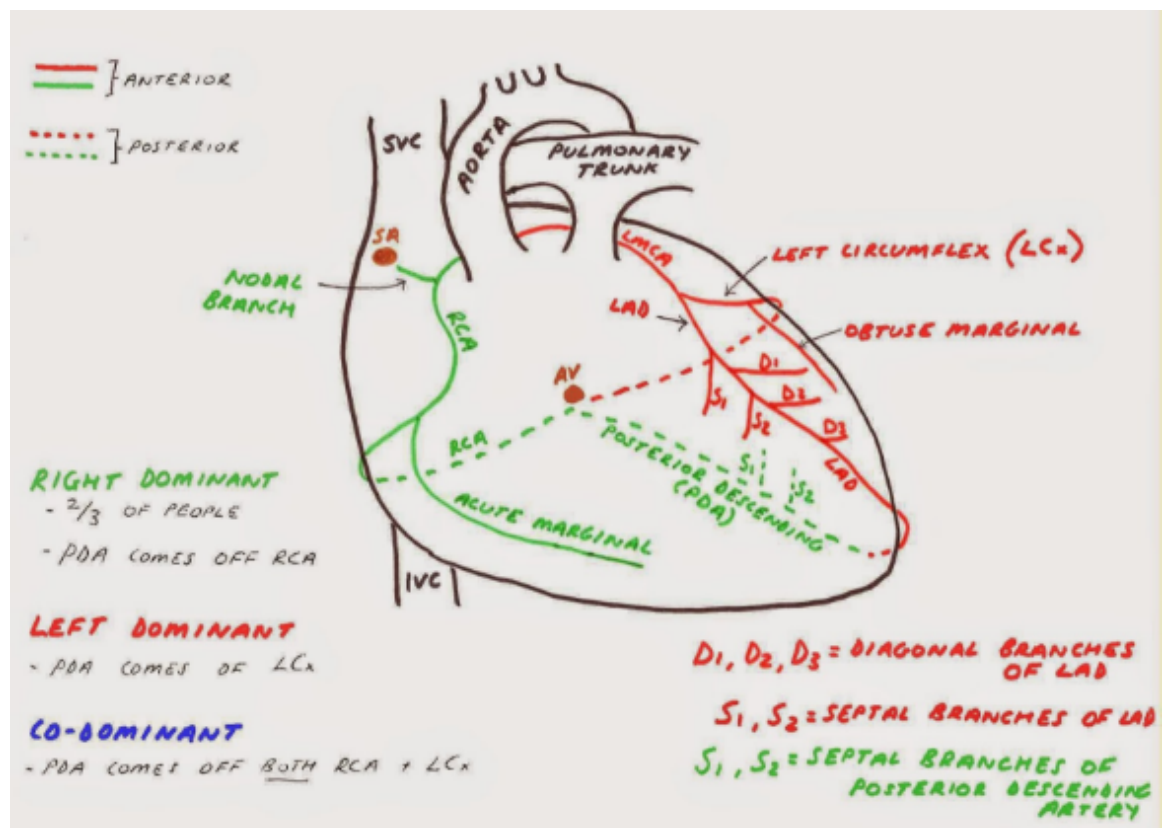 ANTERIOR
POSTERIOR
SVC
AORTA
PULMONARY
TRUNK
SA
NODAL
BRANCH
RCA
LMCA
LEFT CIRCUMFLEX (LCx)
LAD
OBTUSE MARGINAL
D1
D2
D3
S1
S2
LAD
AV
RCA
POSTERIOR DESCENDING
(PDA)
S1
S2
ACUTE MARGINAL
IVC
RIGHT DOMINANT
- 2/3 OF PEOPLE
- PDA COMES OFF RCA
LEFT DOMINANT
- PDA COMES OF LCx
CO-DOMINANT
- PDA COMES OFF BOTH RCA + LCx
D1, D2, D3 = DIAGONAL BRANCHES
OF LAD
S1, S2 = SEPTAL BRANCHES OF LAD
S1, S2 = SEPTAL BRANCHES OF
POSTERIOR DESCENDING
ARTERY